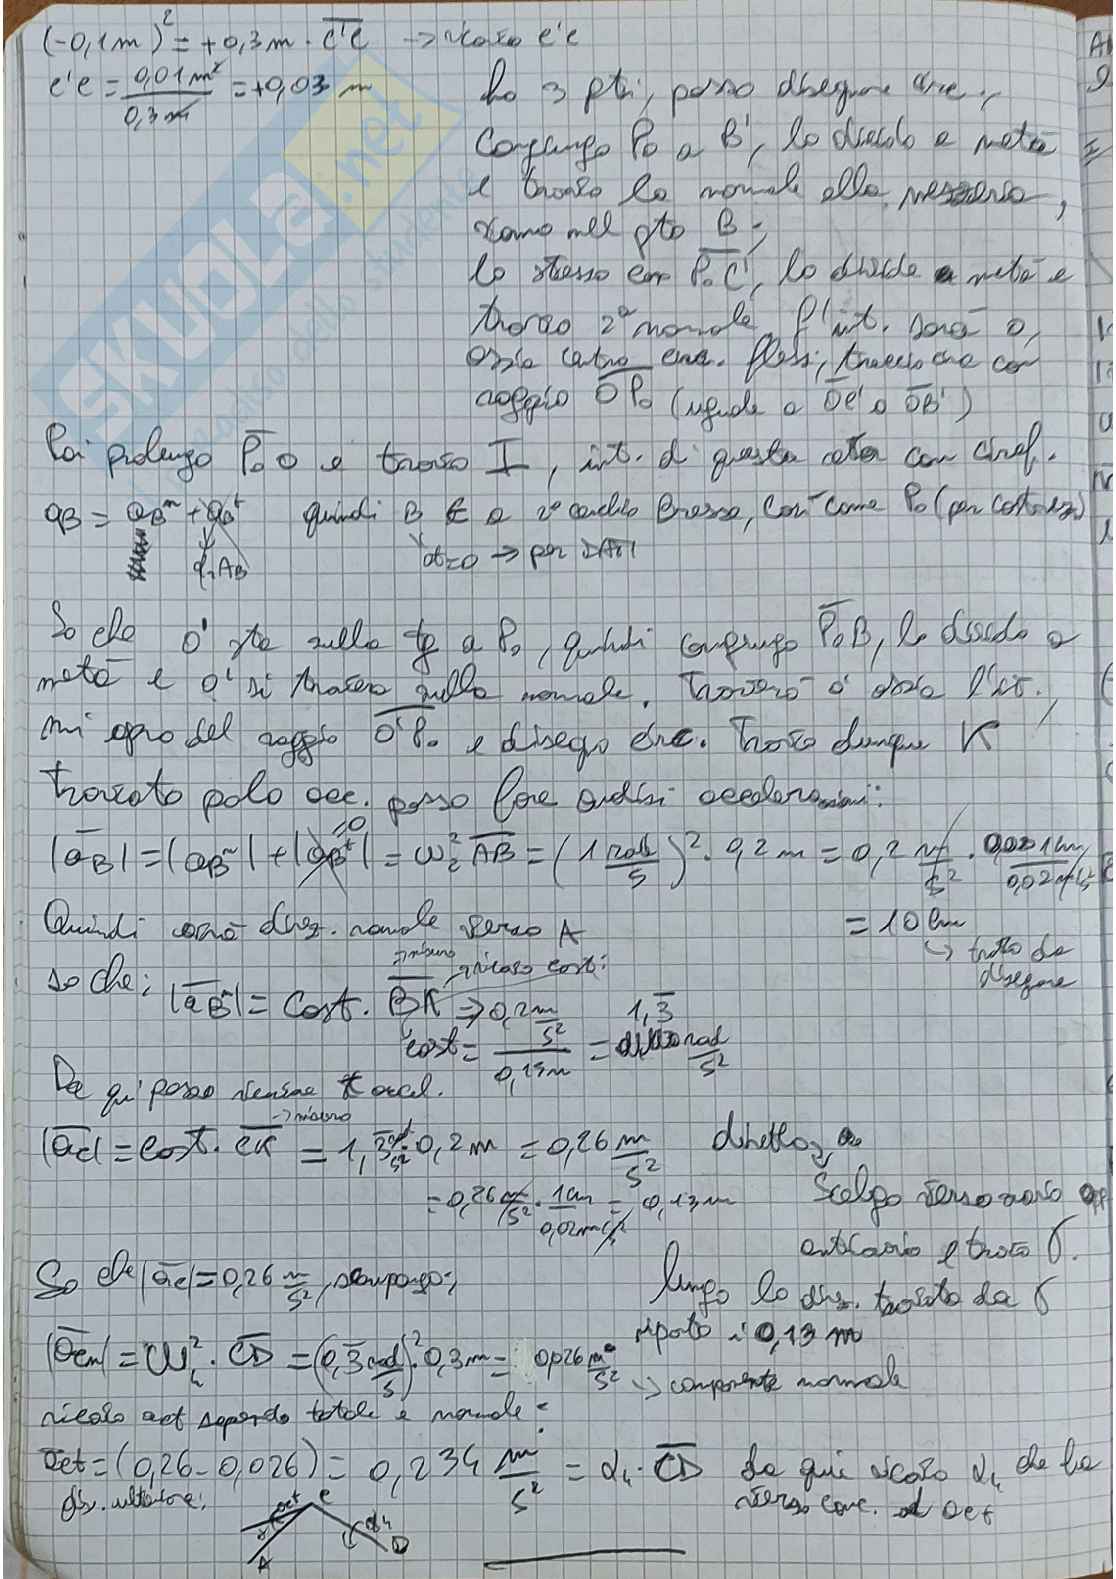 (-0,1m)² = +0,3m · c'c → ricavo c'c
c'c = 0,01m² / 0,3m = +0,03 m
ho 3 pti, posso disegnare circ.,
Congiungo P₀ a B', lo divido a metà
e traccio la normale alla
siamo nel pto B;
lo stesso con P₀C', lo divido a metà e
traccio 2ª normale, l'int. sarà O,
ossia centro circ. flessi, traccio circ con
raggio OP₀ (uguale a OC' o OB')
Poi prolungo P₀O e trovo I, int. di questa retta con circf.
aB = aBⁿ + aBᵗ quindi B ∈ a 2° cerchio Bresse, così come P₀ (per costruz)
α₂AB
α=0 → per
So che O' sta sulla tg a P₀, quindi congiungo P₀B, lo divido a
metà e O' si trova sulla normale. Troverò O' ossia l'int.
mi apro del raggio O'P₀ e disegno circ. Trovo dunque K
Trovato polo acc. posso fare analisi accelerazioni:
|aB| = |aBⁿ| + |aBᵗ| = ω₂² AB = (1 rad/s)² · 0,2 m = 0,2 m/s² · 1cm / 0,02 m/s²
=0
= 10 cm
→ tratto da
disegnare
Quindi avrà direz. normale verso A
so che: |aBⁿ| = Cost. BK ⇒ 0,2 m/s²
→ misuro
→ ricavo cost:
cost = 0,2 m/s² / 0,15m = 1,3 rad/s²
Da qui posso ricavare accel.
|aC| = cost. CK = 1,3 · 0,2 m = 0,26 m/s² direttoz,
→ misuro
= 0,26 m/s² · 1cm / 0,02m/s² = 0,13m
Scelgo verso orario opp
antiorario e trovo σ.
So che |aC| = 0,26 m/s², scompongo:
lungo la direz. trovata da σ
riporto i 0,13 m
|aCn| = ω₄² · CD = (0,3 rad/s)² · 0,3 m = 0,026 m/s²
→ componente normale
ricavo act sapendo totale e normale:
aCt = (0,26 - 0,026) = 0,234 m/s² = α₄ · CD da qui ricavo α₄ che ha
verso conc. ad act
act
C
α₄
A
D